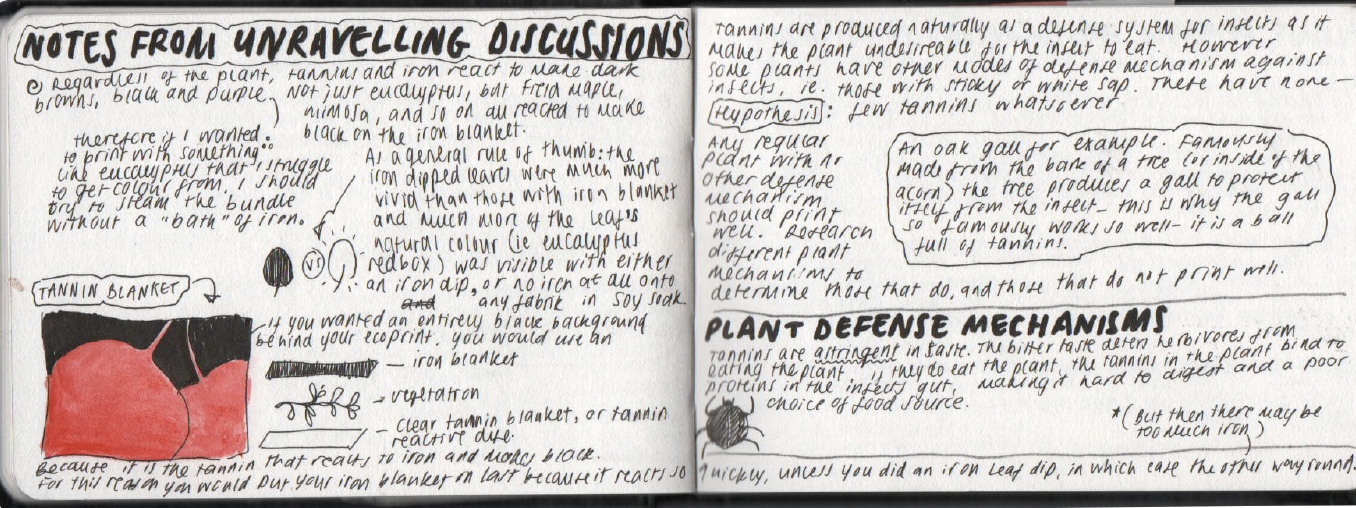 NOTES FROM UNRAVELLING DISCUSSIONS
Regardless of the plant, tannins and iron react to make dark
browns, black and purple. Not just eucalyptus, but field maple,
mimosa, and so on all reacted to make
black on the iron blanket.
therefore if I wanted
to print with something
like eucalyptus that I struggle
to get colour from, I should
try to steam the bundle
without a "bath" of iron.
As a general rule of thumb: the
iron dipped leaves were much more
vivid than those with iron blanket
and much more of the leaf's
natural colour (ie eucalyptus
redbox) was visible with either
an iron dip, or no iron at all onto
any fabric in soy soak.
VS
TANNIN BLANKET
if you wanted an entirely black background
behind your ecoprint, you would use an
— iron blanket
→ vegetation
— clear tannin blanket, or tannin
reactive dye.
Because it is the tannin that reacts to iron and makes black.
For this reason you would put your iron blanket on last because it reacts so
Tannins are produced naturally as a defense system for insects as it
makes the plant undesireable for the insect to eat. However
some plants have other modes of defense mechanism against
insects, ie. those with sticky or white sap. These have none—
Hypothesis: few tannins whatsoever.
Any regular
plant with no
other defense
mechanism
should print
well. Research
different plant
mechanisms to
determine those that do, and those that do not print well.
An oak gall for example. Famously
made from the bark of a tree (or inside of the
acorn) the tree produces a gall to protect
itself from the insect— this is why the gall
so famously works so well— it is a ball
full of tannins.
PLANT DEFENSE MECHANISMS
Tannins are astringent in taste. The bitter taste deters herbivores from
eating the plant. If they do eat the plant, the tannins in the plant bind to
proteins in the insects gut, making it hard to digest and a poor
choice of food source.
*(But then there may be
too much iron)
quickly, unless you did an iron leaf dip, in which case the other way round.